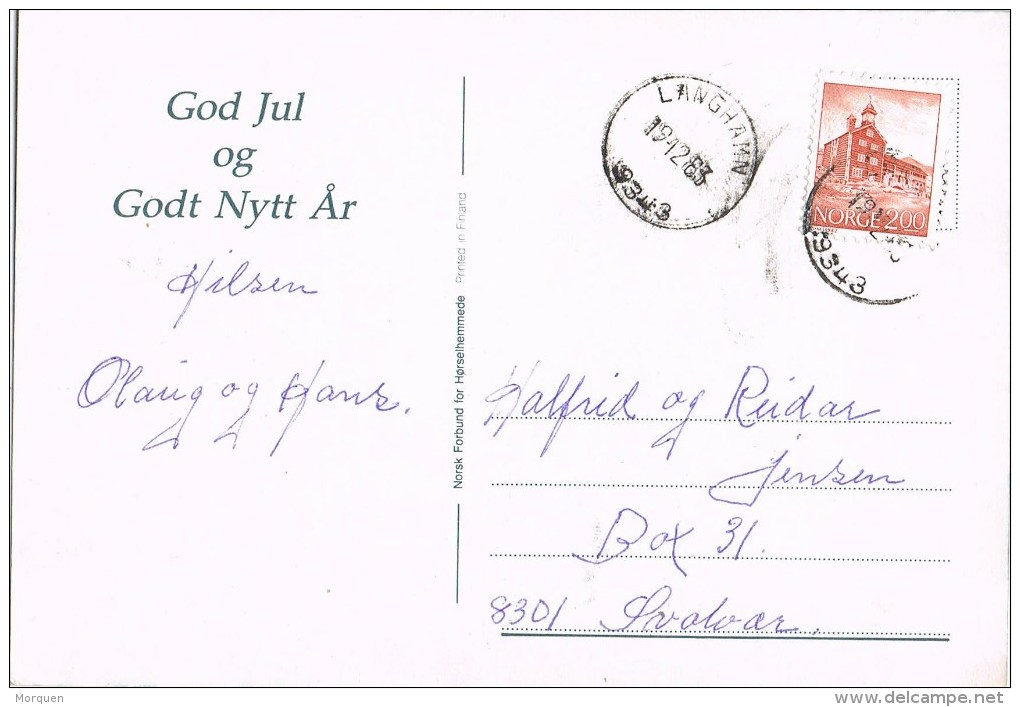 God Jul
og
Godt Nytt År
Hilsen
Olaug og Hans.
Norsk Forbund for Hørselhemmede Printed in Finland
LANGHAMN
19.12.83
9343
NORGE 2.00
9343
Halfrid og Reidar
Jensen
Box 31.
8301 Svolvær.
Morquen
delcampe.net